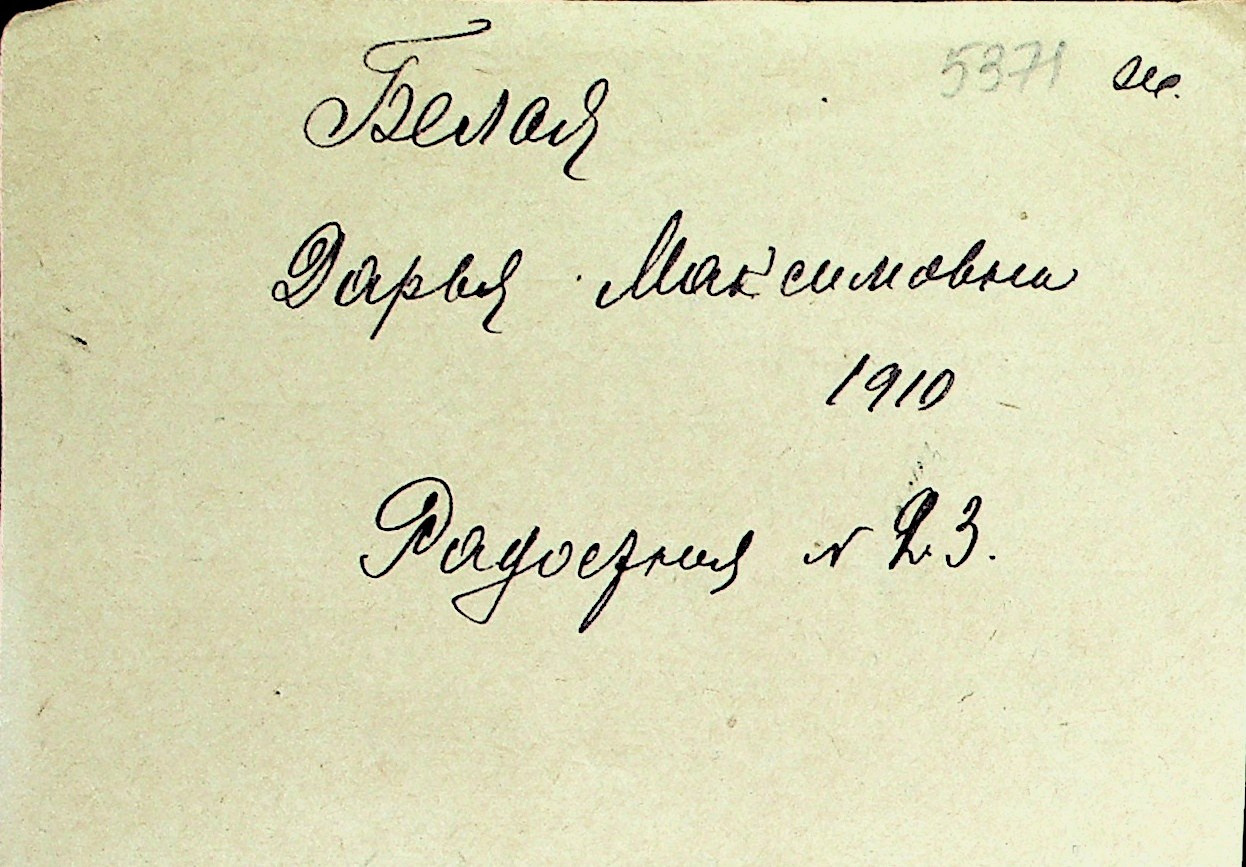 5371 ж.
Белая
Дарья Максимовна
1910
Радостная N 23.